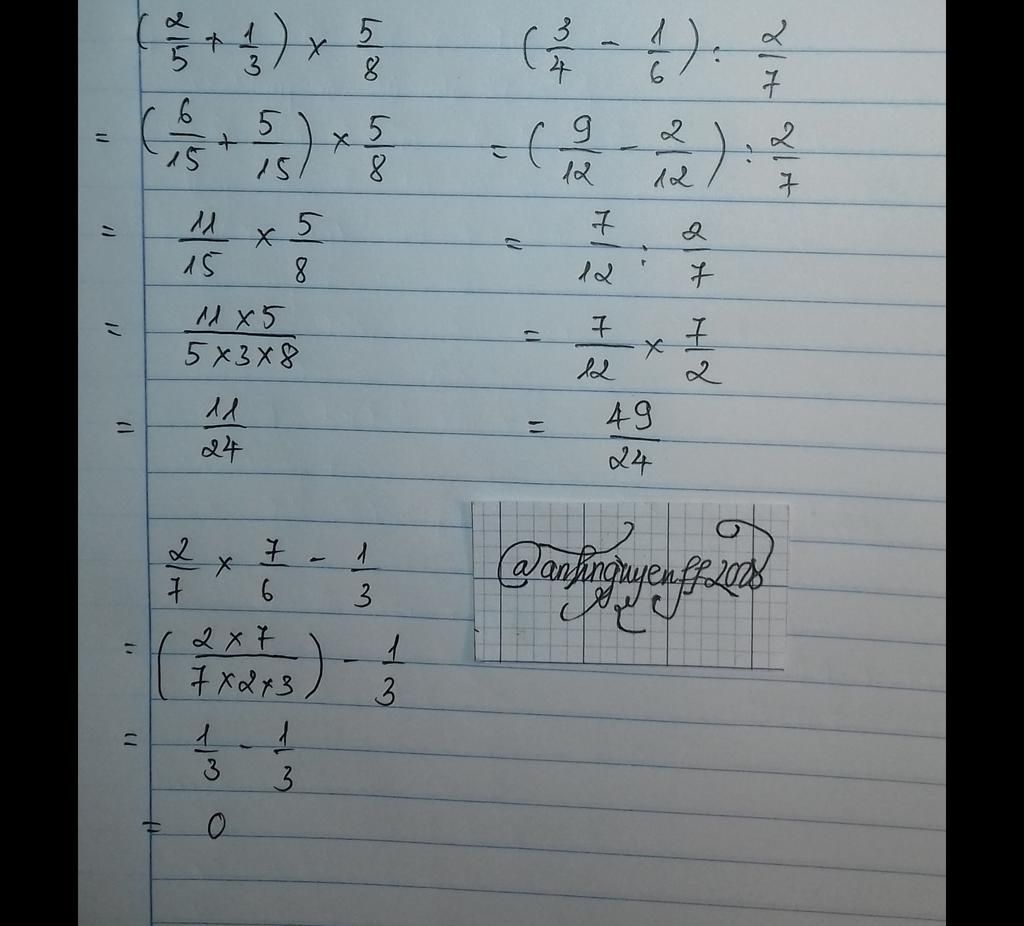 (2/5 + 1/3) × 5/8
= (6/15 + 5/15) × 5/8
= 11/15 × 5/8
= (11 × 5)/(5 × 3 × 8)
= 11/24
(3/4 - 1/6) : 2/7
= (9/12 - 2/12) : 2/7
= 7/12 : 2/7
= 7/12 × 7/2
= 49/24
2/7 × 7/6 - 1/3
= ((2 × 7)/(7 × 2 × 3)) - 1/3
= 1/3 - 1/3
= 0
@anhnguyenff2008